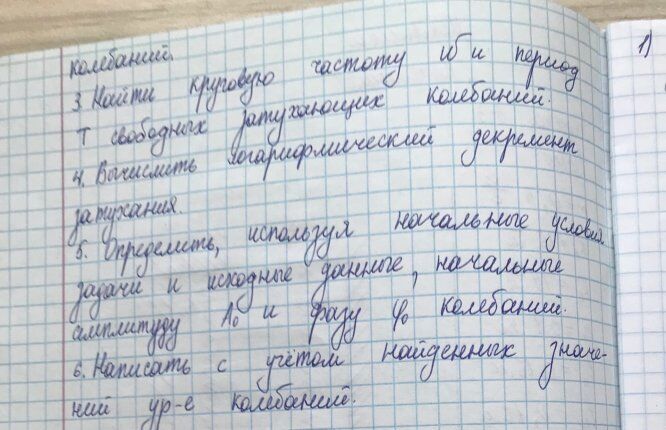 колебаний.
3. Найти круговую частоту ω и период
T свободных затухающих колебаний.
4. Вычислить логарифмический декремент
затухания.
5. Определить, используя начальные условия
задачи и исходные данные, начальные
амплитуду A₀ и фазу φ₀ колебаний.
6. Написать с учётом найденных значе-
ний ур-е колебаний.
1)